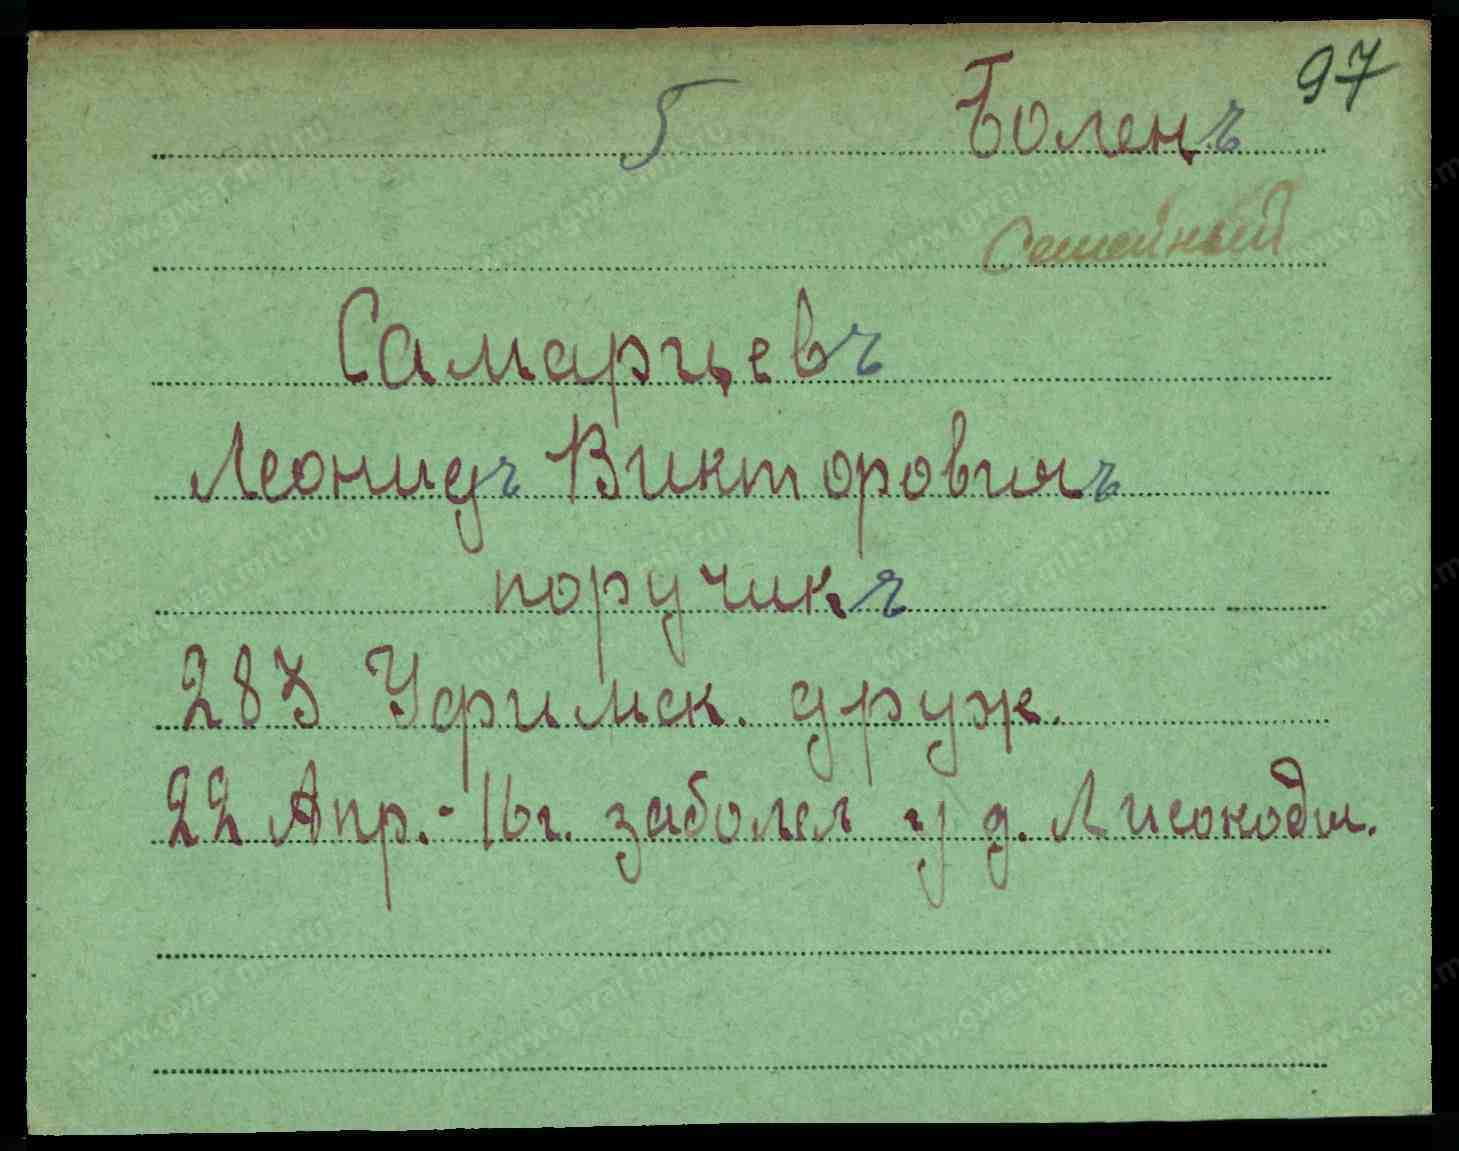 97
Б Боленъ
Семейный
Самарцевъ
Леонидъ Викторовичъ
поручикъ
283 Уфимск. друж.
22 Апр.-16г. заболел у д.
www.gwar.mil.ru